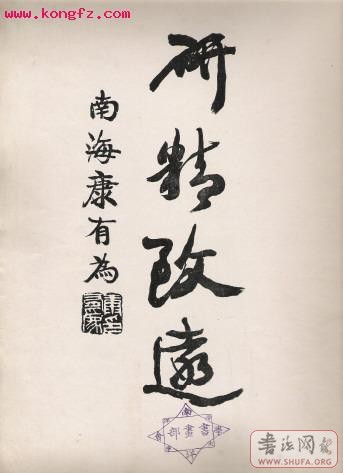 www.kongfz.com
研精致遠
南海康有為
書畫部
书法网报
WWW.SHUFA.ORG